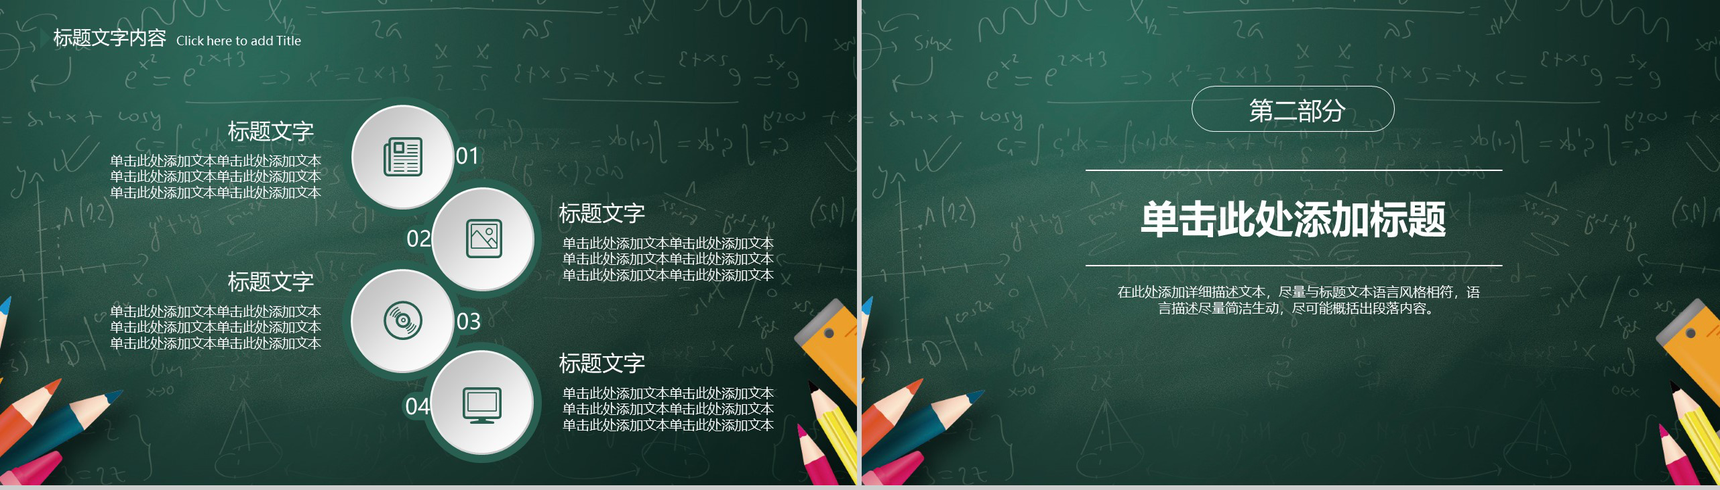 标题文字内容 Click here to add Title
标题文字
单击此处添加文本单击此处添加文本
单击此处添加文本单击此处添加文本
单击此处添加文本单击此处添加文本
01
02
标题文字
单击此处添加文本单击此处添加文本
单击此处添加文本单击此处添加文本
单击此处添加文本单击此处添加文本
标题文字
单击此处添加文本单击此处添加文本
单击此处添加文本单击此处添加文本
单击此处添加文本单击此处添加文本
03
04
标题文字
单击此处添加文本单击此处添加文本
单击此处添加文本单击此处添加文本
单击此处添加文本单击此处添加文本
第二部分
单击此处添加标题
在此处添加详细描述文本，尽量与标题文本语言风格相符，语
言描述尽量简洁生动，尽可能概括出段落内容。